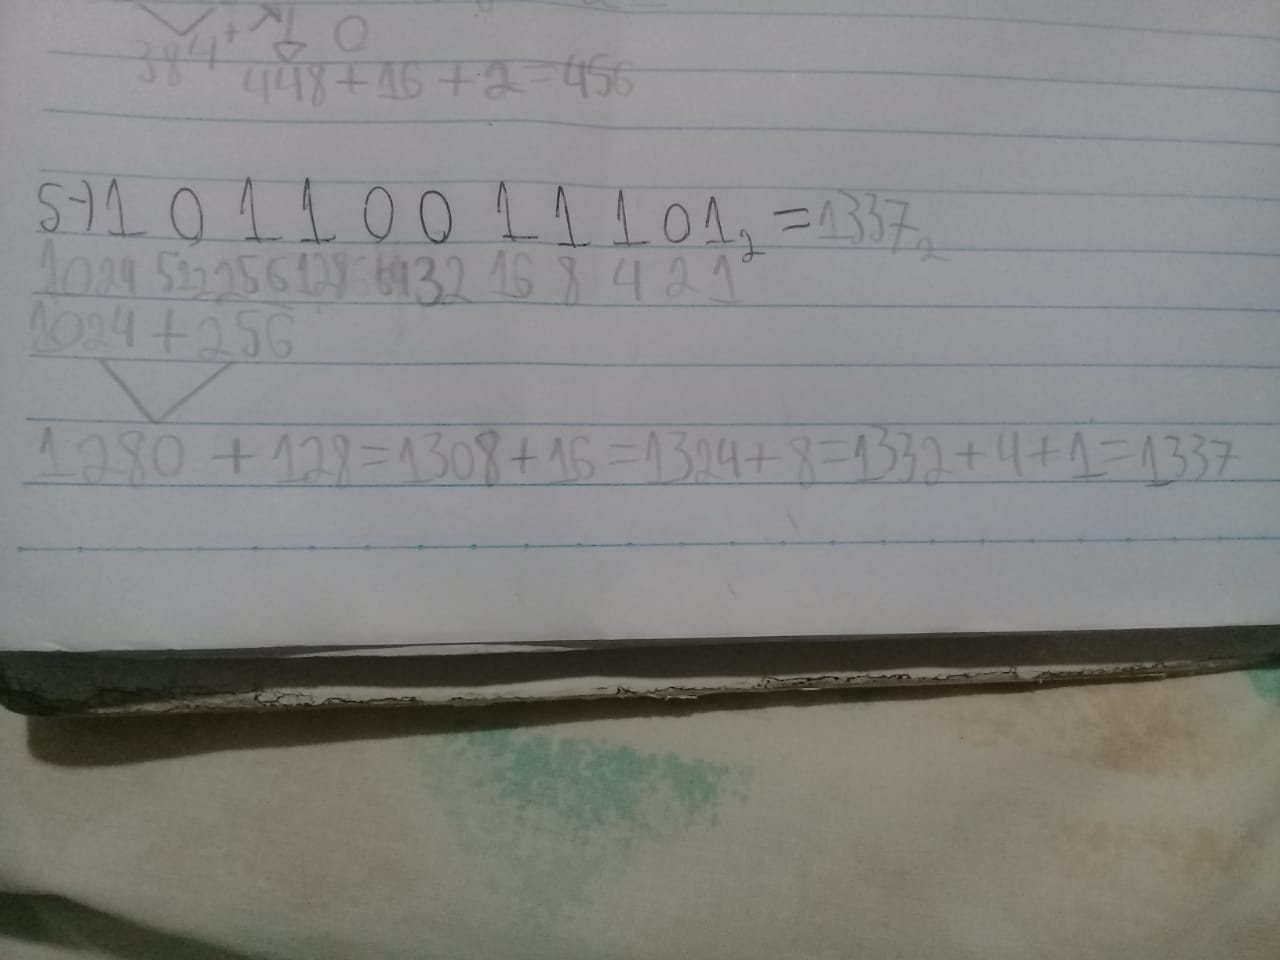 384+ 0
448+16+2=456
5-) 1 0 1 1 0 0 1 1 1 0 1₂ = 1337₂
1024 522 256 128 64 32 16 8 4 2 1
1024+256
1280 + 128=1308+16=1324+8=1332+4+1=1337